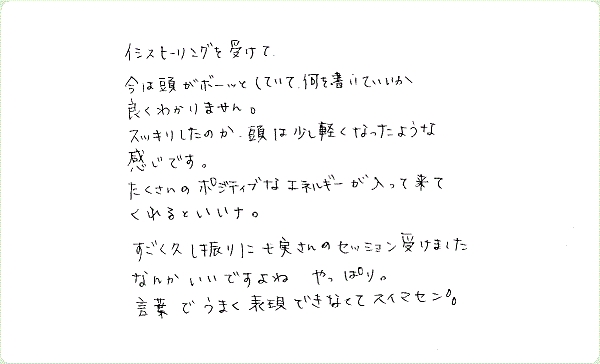 イシスヒーリングを受けて、
今は頭がボーッとしていて、何を書いていいか
良くわかりません。
スッキリしたのか、頭は少し軽くなったような
感じです。
たくさんのポジティブなエネルギーが入って来て
くれるといいナ。
すごく久し振りに七実さんのセッション受けました
なんかいいですよね やっぱり。
言葉でうまく表現できなくてスイマセン。